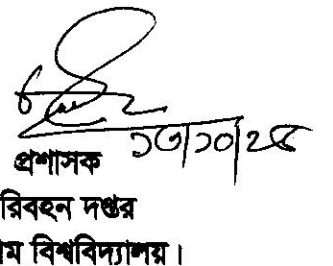 ১৩/১০/২৫
প্রশাসক
রিবহন দপ্তর
ম বিশ্ববিদ্যালয়।